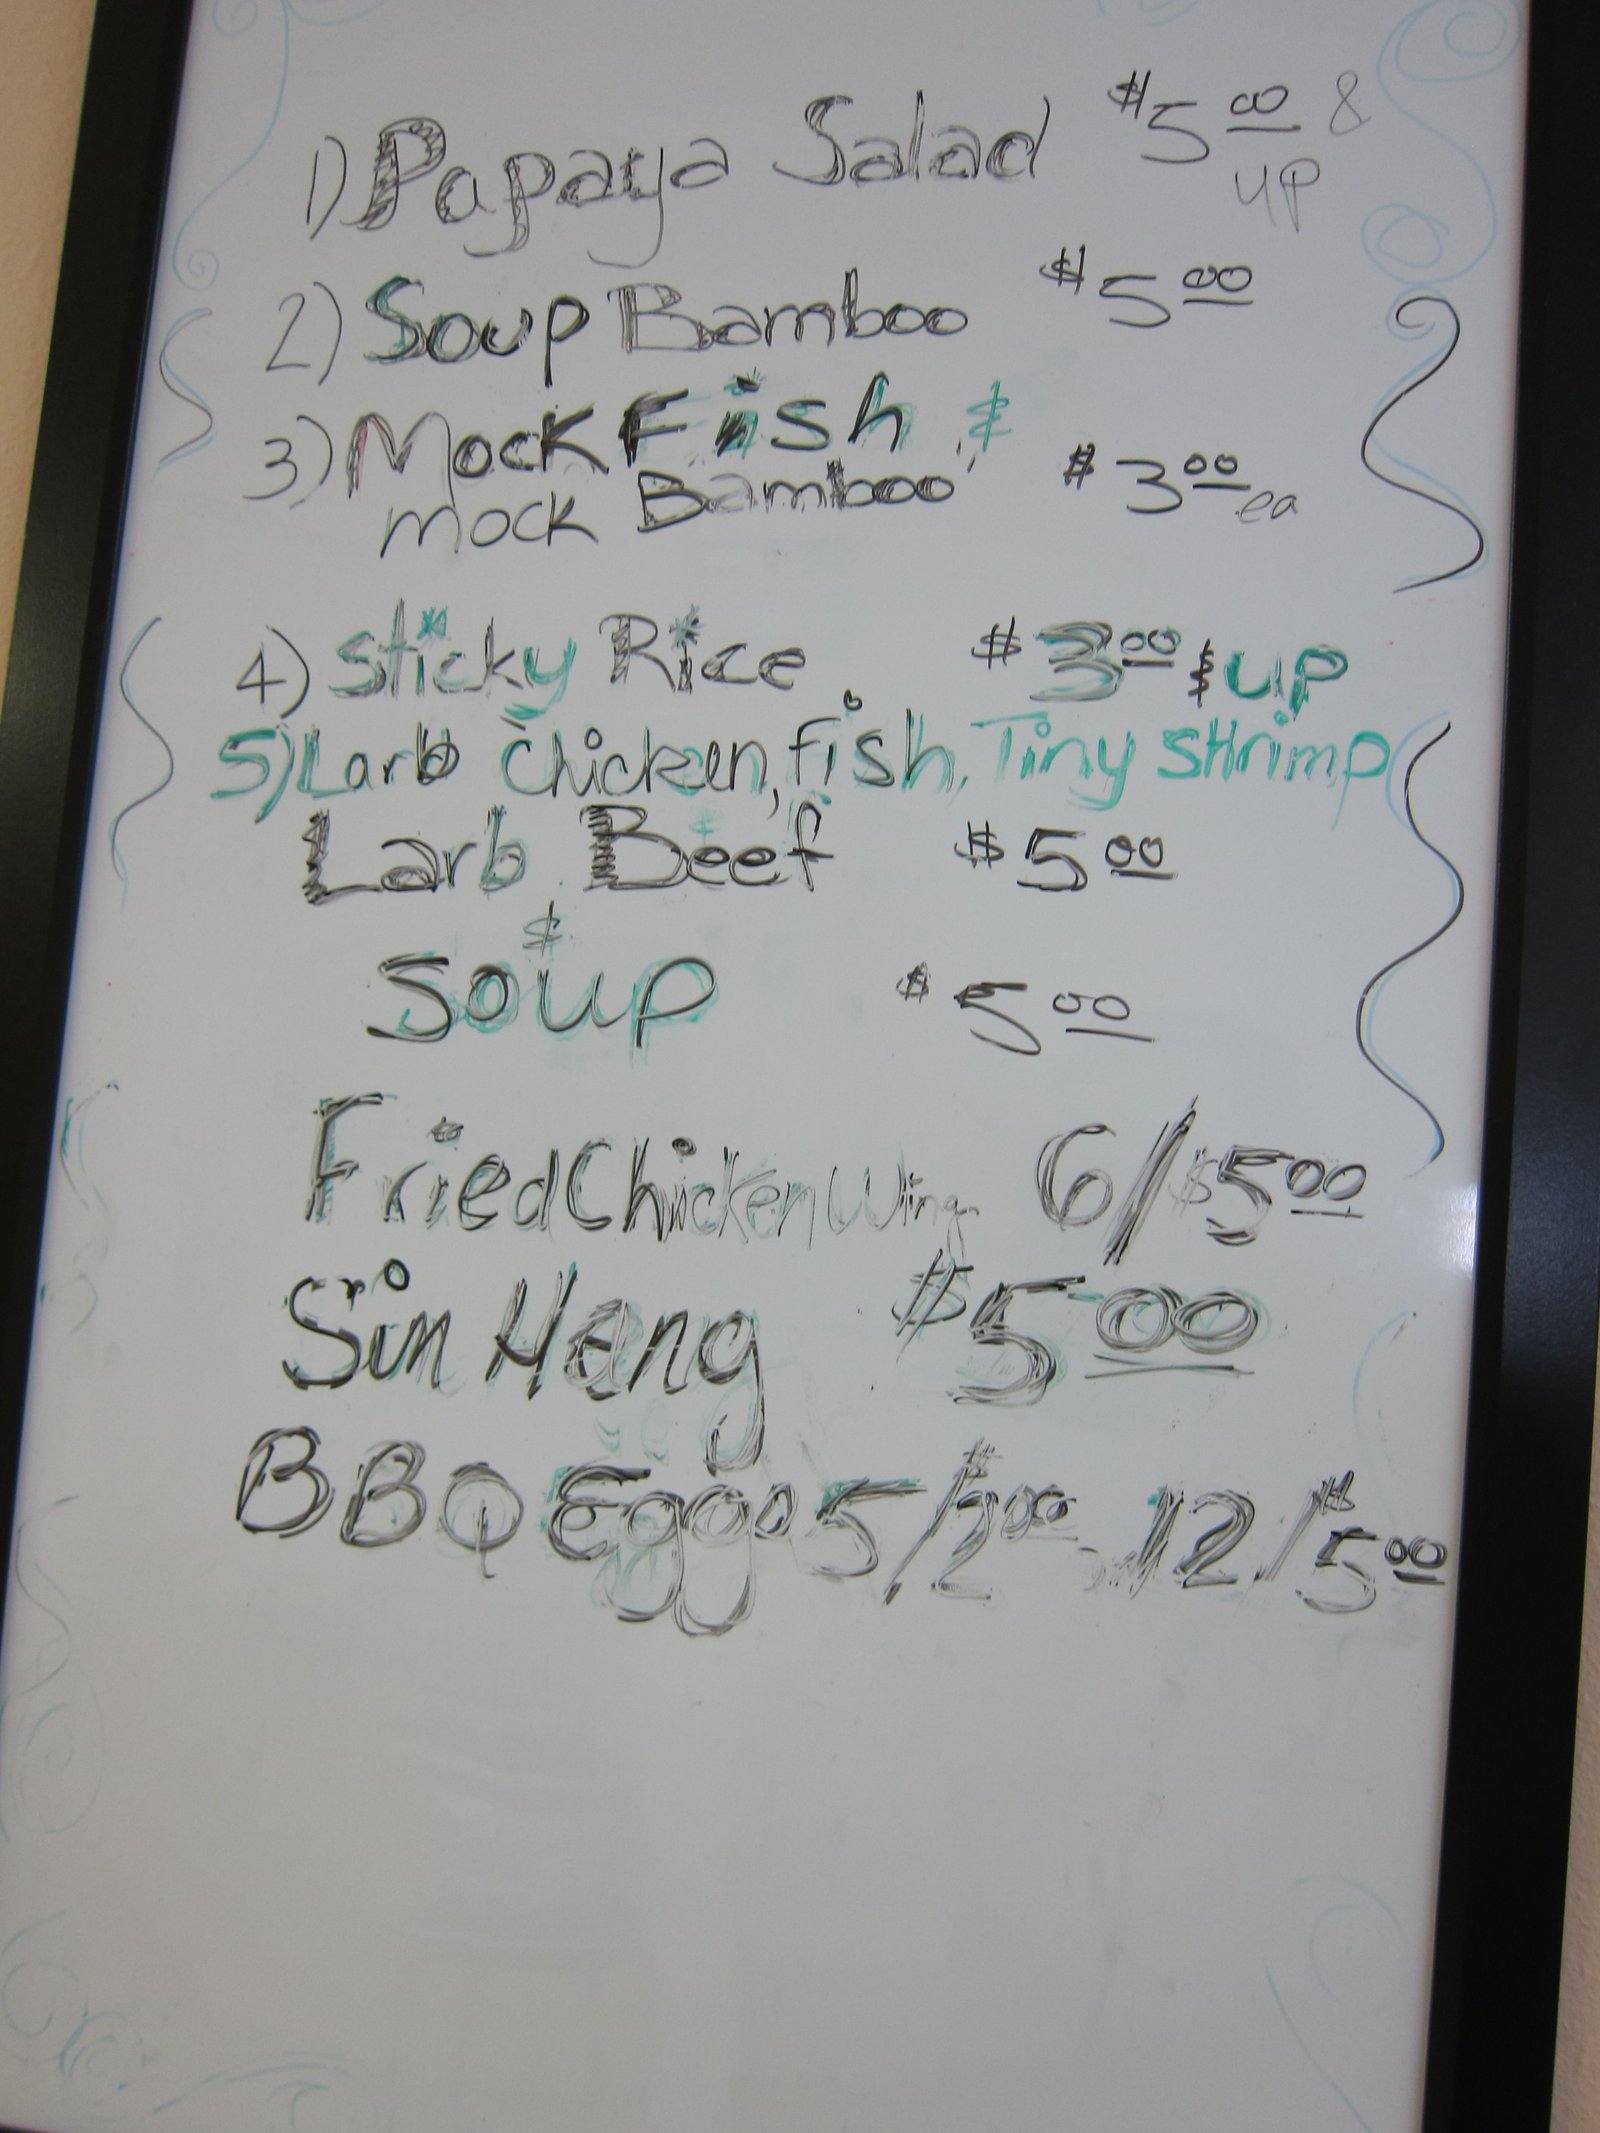 1) Papaya Salad $5.00 & up
2) Soup Bamboo $5.00
3) Mock Fish &
mock Bamboo $3.00 ea
4) Sticky Rice $3.00 & up
5) Larb chicken, fish, Tiny Shrimp
Larb Beef $5.00
&
Soup $5.00
Fried Chicken Wing 6/$5.00
Sin Hang $5.00
BBQ Eggs 5/$2.00 12/$5.00